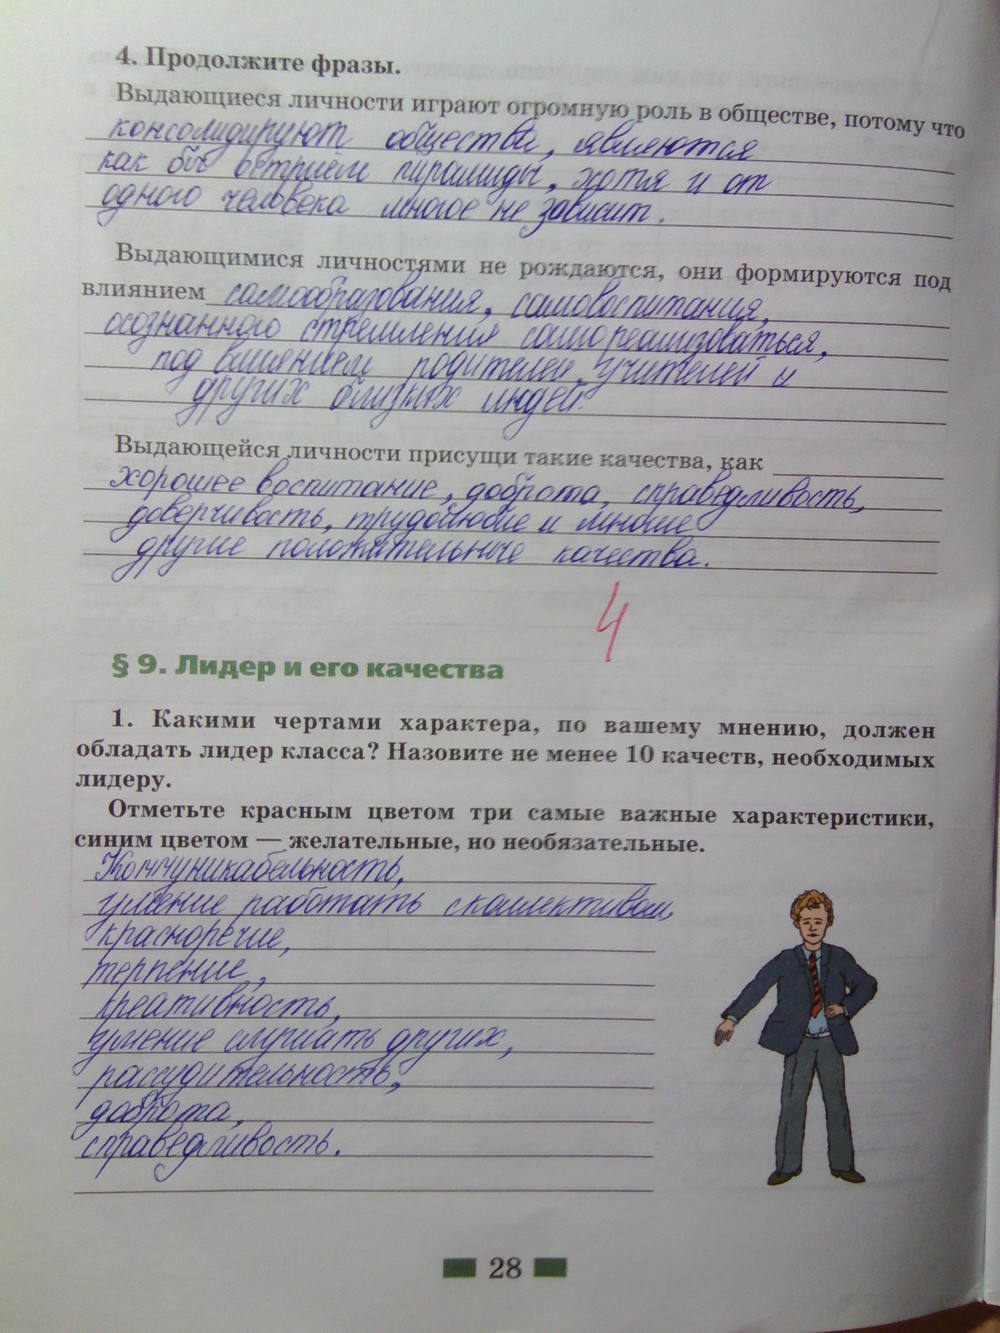 4. Продолжите фразы.
Выдающиеся личности играют огромную роль в обществе, потому что
консолидируют общество, являются
как бы острием пирамиды, хотя и от
одного человека многое не зависит.
Выдающимися личностями не рождаются, они формируются под
влиянием самообразования, самовоспитания,
осознанного стремления самореализоваться,
под влиянием родителей, учителей и
других близких людей.
Выдающейся личности присущи такие качества, как
хорошее воспитание, доброта, справедливость,
доверчивость, трудолюбие и многие
другие положительные качества.
4
§ 9. Лидер и его качества
1. Какими чертами характера, по вашему мнению, должен
обладать лидер класса? Назовите не менее 10 качеств, необходимых
лидеру.
Отметьте красным цветом три самые важные характеристики,
синим цветом — желательные, но необязательные.
Коммуникабельность,
умение работать с коллективом,
красноречие,
терпение,
креативность,
умение слушать других,
рассудительность,
доброта,
справедливость.
28